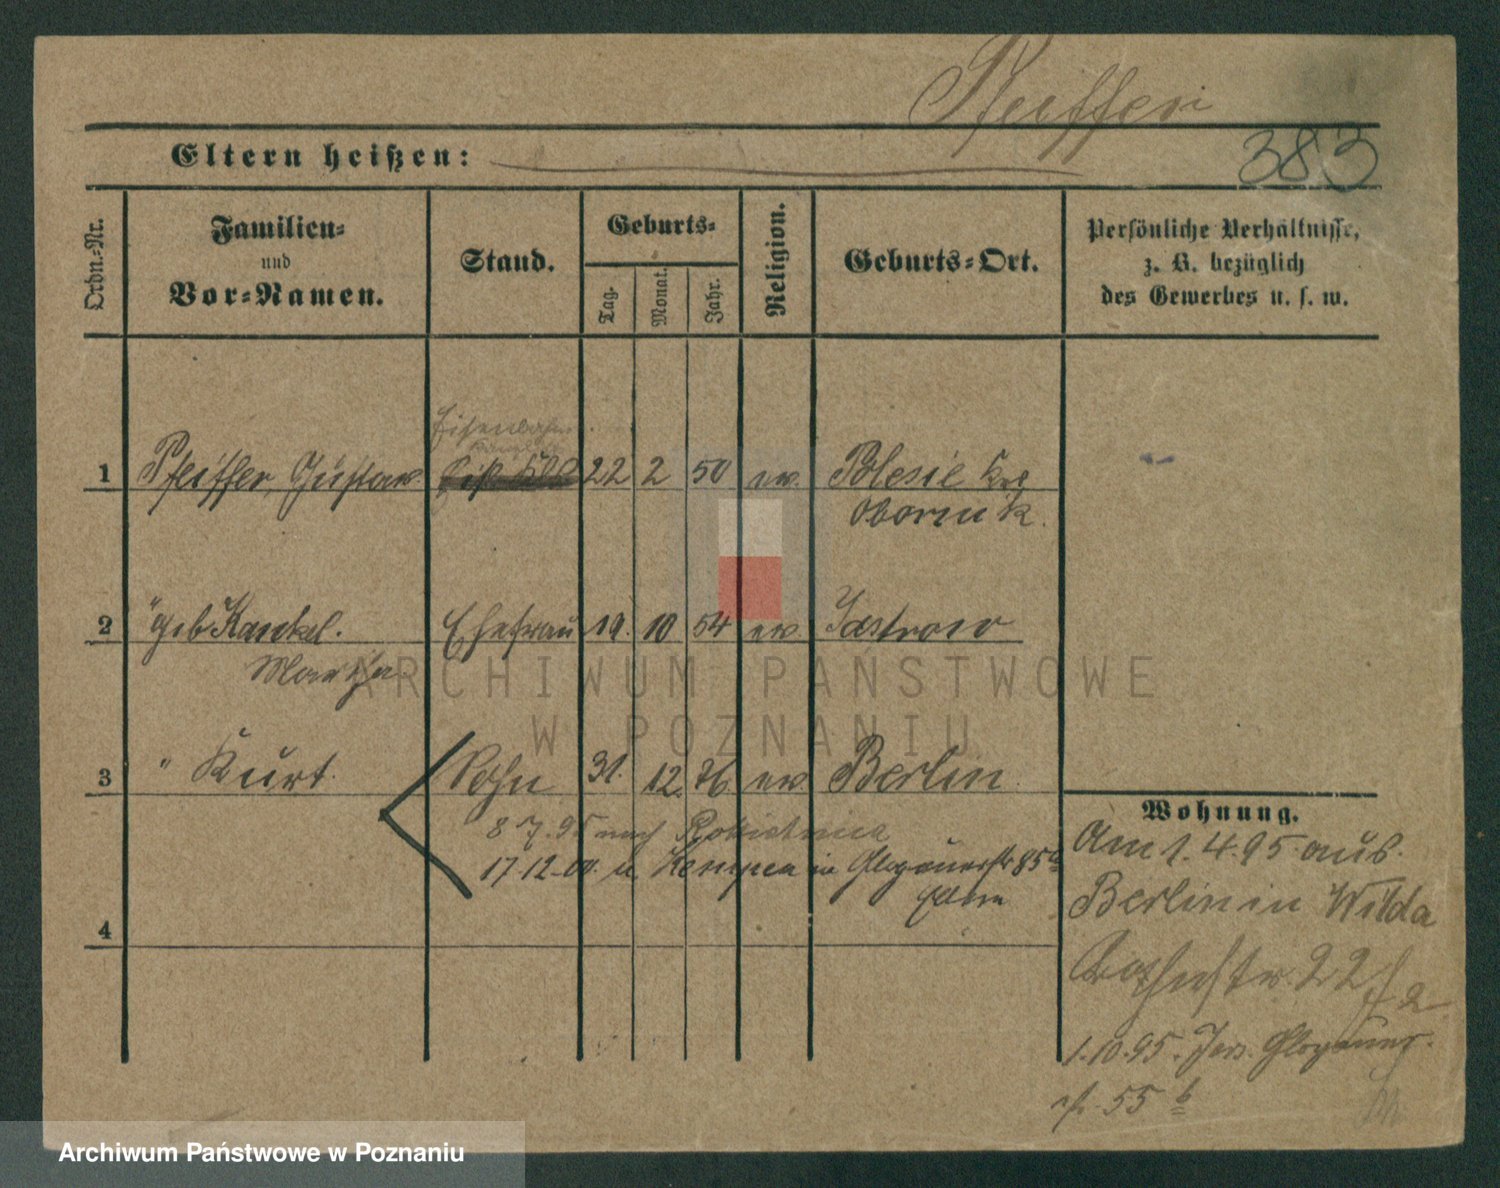 Pfeiffer
383
Eltern heißen:
Ordn.-Nr.
Familien-
und
Vor-Namen.
Stand.
Geburts-
Tag.
Monat.
Jahr.
Religion.
Geburts-Ort.
Persönliche Verhältnisse,
z. B. bezüglich
des Gewerbes u. s. w.
Eisenbahn
1 Pfeiffer, Gustav. 22 2 50 ev. Polesie Krs
Obornik.
2 " geb Kankel. Ehefrau 19. 10 54 ev. Jastrow
Martha
3 " Kurt. Sohn 31. 12. 76. ev. Berlin.
8 7. 95 nach Rokietnica
17.12.00. v. Kempen in Glogauerstr 85a
Eltern
4
Wohnung.
Am 1. 4. 95. aus.
Berlin in Wilda
22
1.10.95. Jers. Glogauer-
str. 55 b
ARCHIWUM PAŃSTWOWE
W POZNANIU
Archiwum Państwowe w Poznaniu